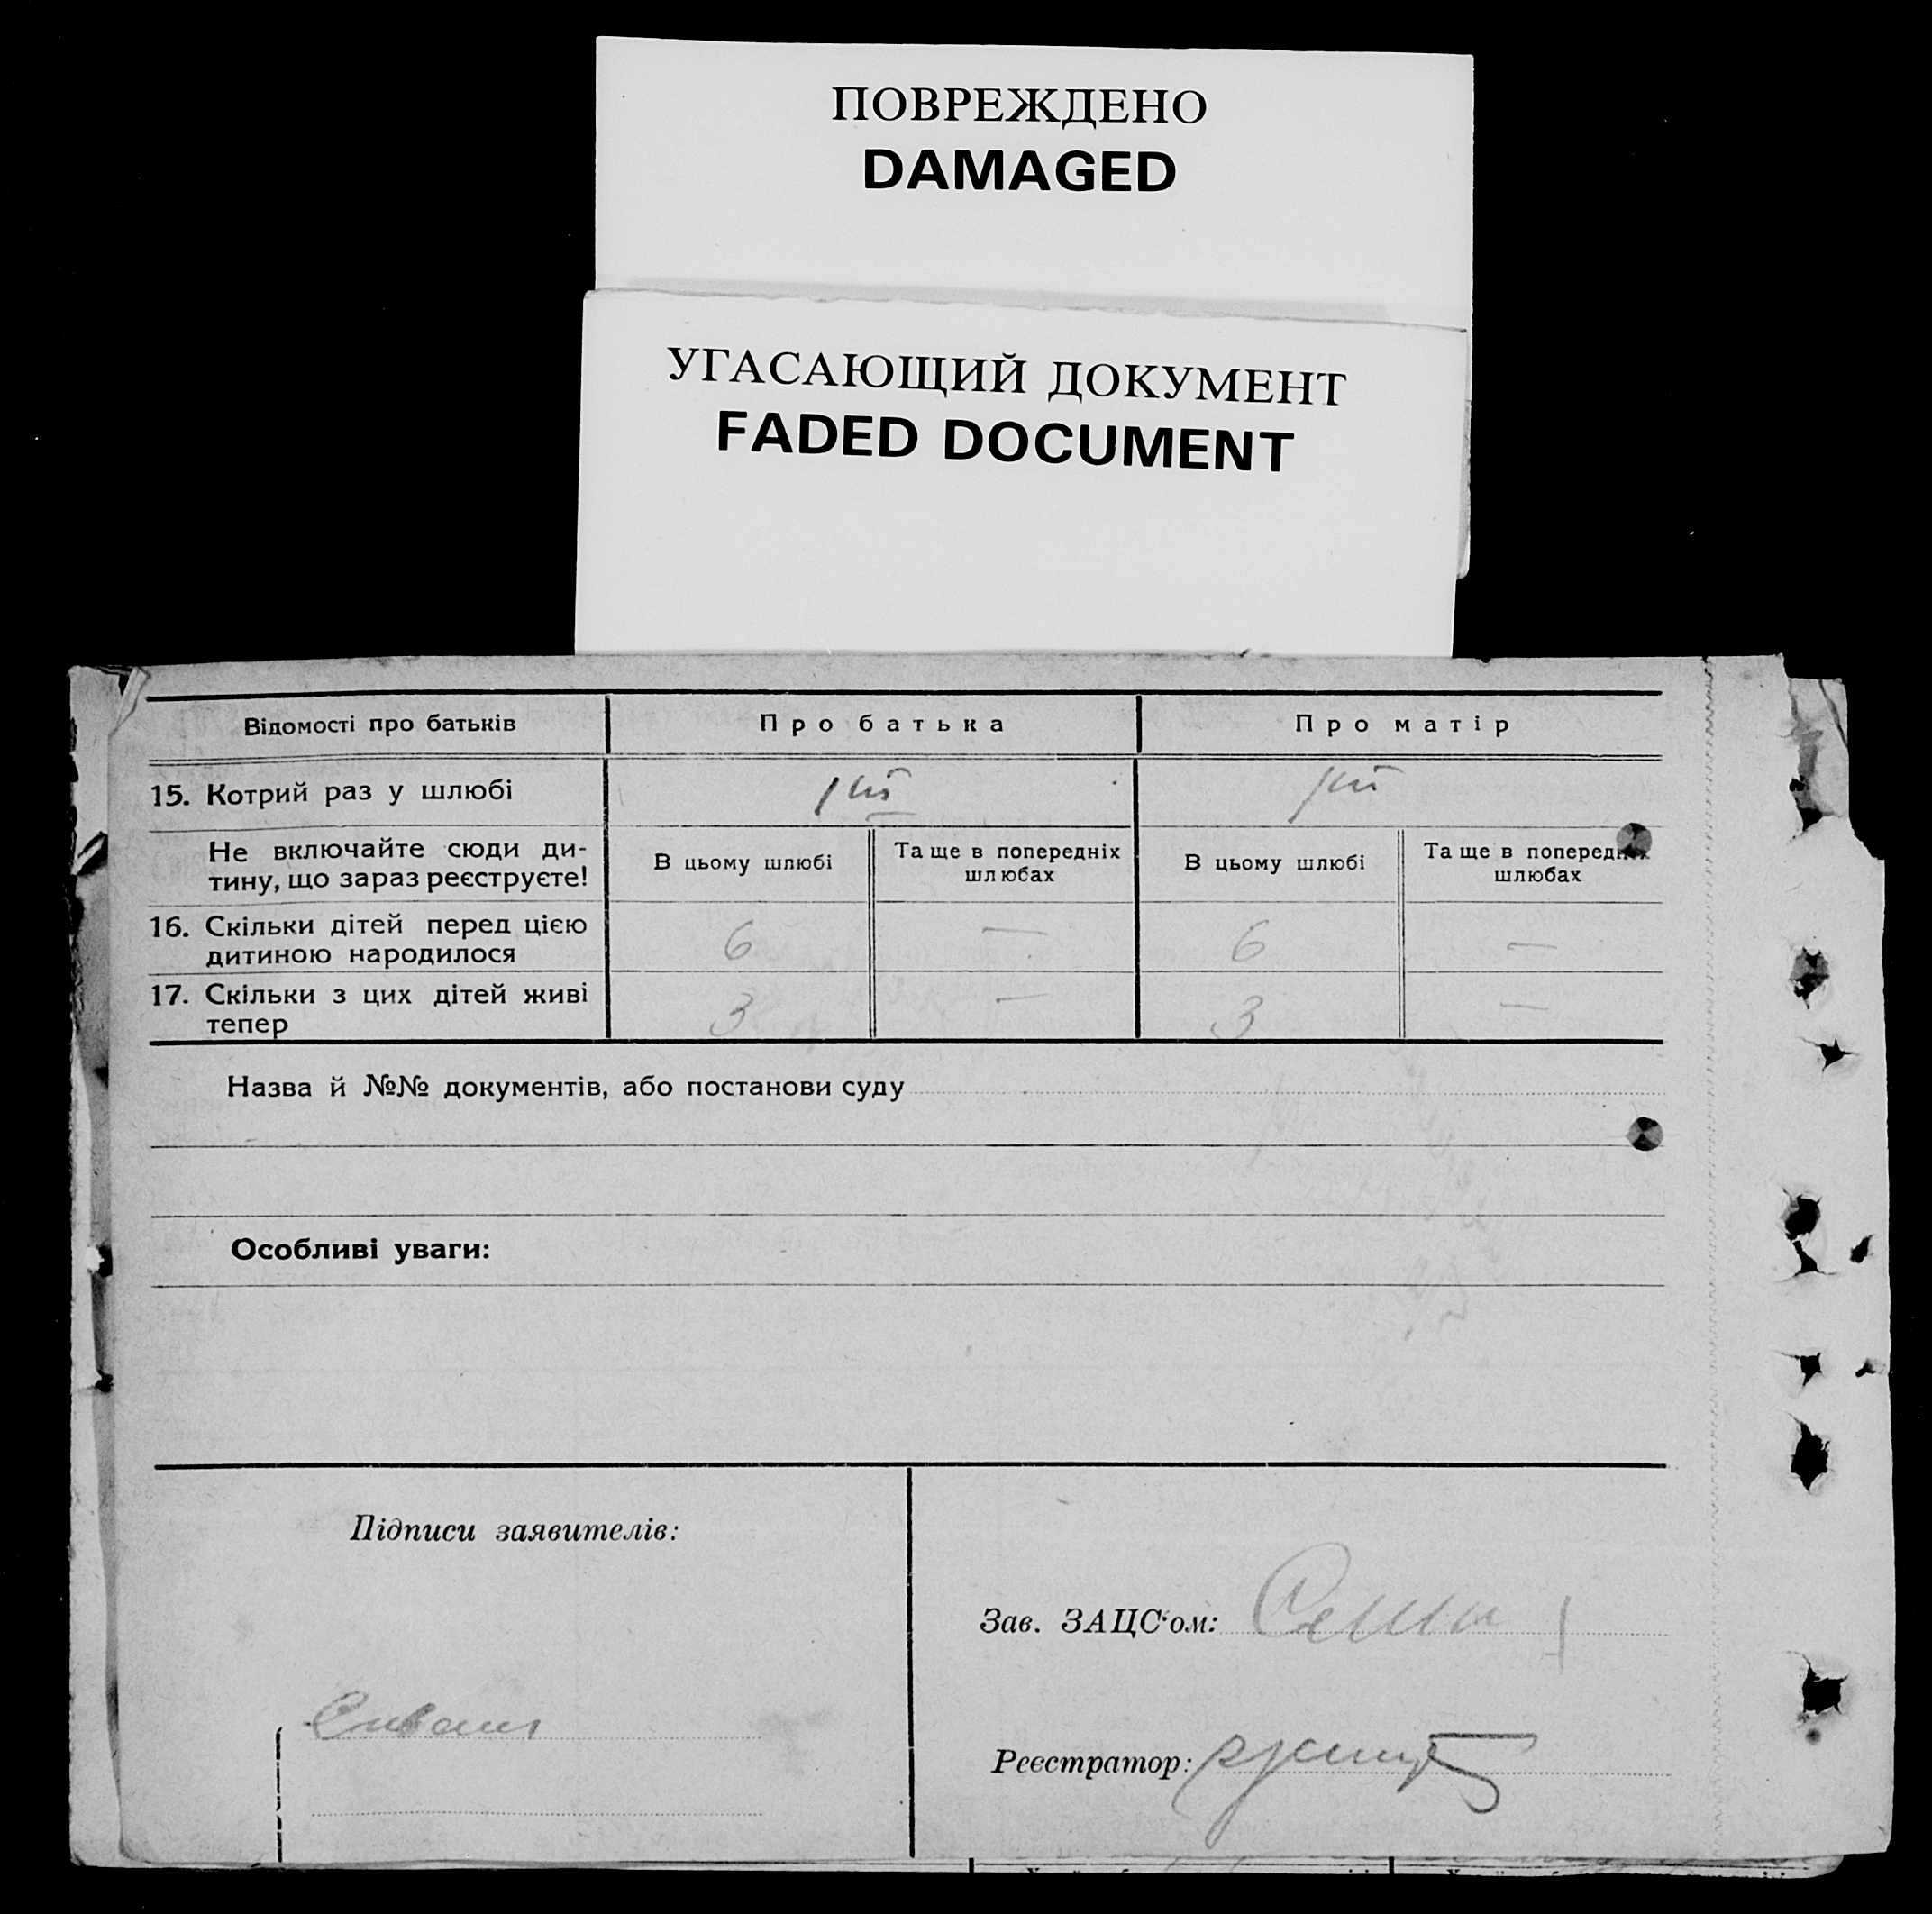 ПОВРЕЖДЕНО
DAMAGED
УГАСАЮЩИЙ ДОКУМЕНТ
FADED DOCUMENT
Відомості про батьків
Про батька
Про матір
15. Котрий раз у шлюбі
Не включайте сюди ди-
тину, що зараз реєструєте!
В цьому шлюбі
Та ще в попередніх
шлюбах
В цьому шлюбі
Та ще в попередніх
шлюбах
16. Скільки дітей перед цією
дитиною народилося
6 — 6 —
17. Скільки з цих дітей живі
тепер
3 — 3 —
Назва й №№ документів, або постанови суду
Особливі уваги:
Підписи заявителів:
Зав. ЗАЦС'ом:
Реєстратор: